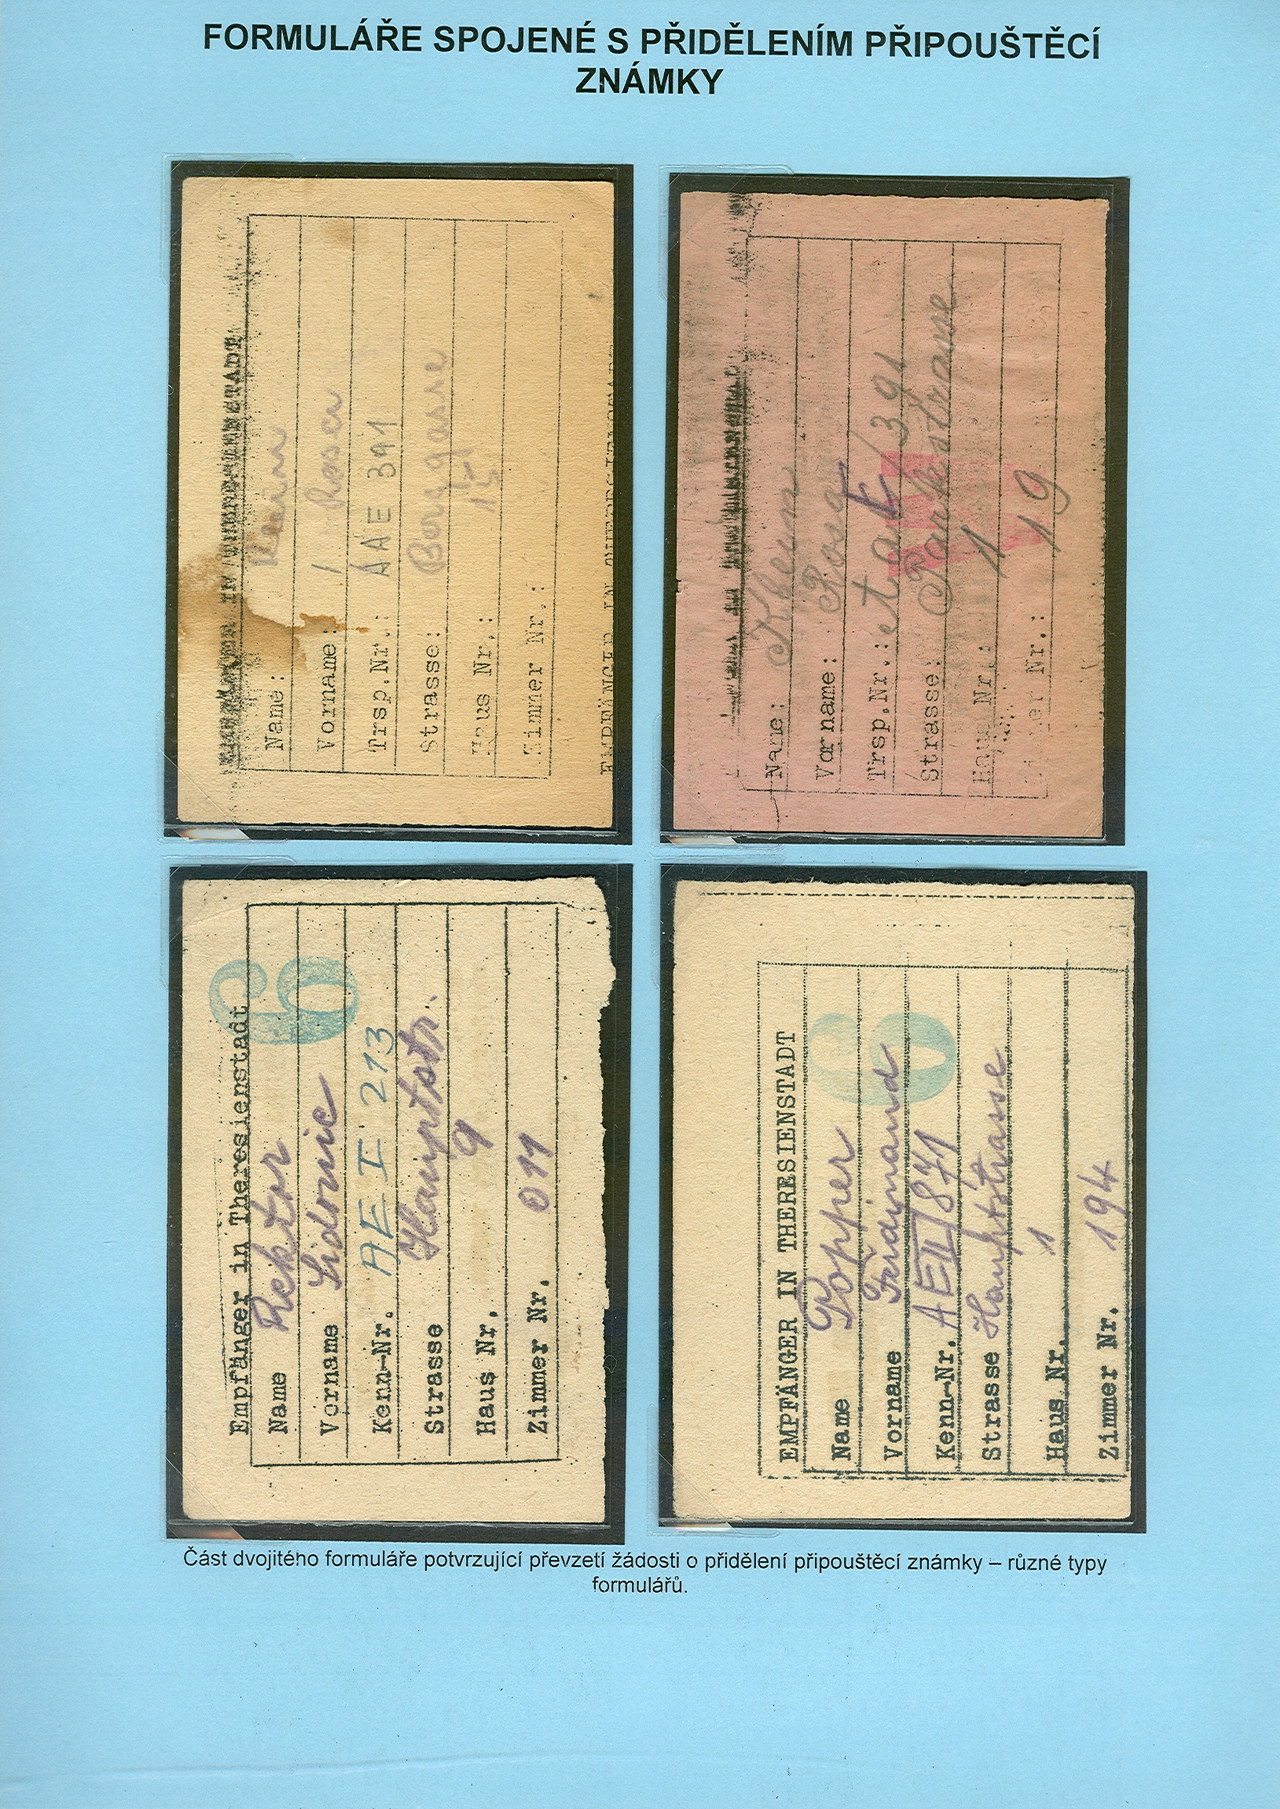 FORMULÁŘE SPOJENÉ S PŘIDĚLENÍM PŘIPOUŠTĚCÍ
ZNÁMKY
IN THERESIENSTADT
Name: Klein
Vorname: Rosa
Trsp.Nr.: AAE 391
Strasse: Berggasse
Haus Nr.: 15
Zimmer Nr.:
EMPFÄNGER IN THERESIENSTADT
Name: Klein
Vorname: Rosa
Trsp.Nr.: 391
Strasse: Parkstrasse
Haus Nr.: 1
Nr.: 19
Empfänger in Theresienstadt
Name Rektor
Vorname Sidonie
Kenn-Nr. AE I 213
Strasse Hauptstr.
Haus Nr. 9
Zimmer Nr. 011
6
EMPFÄNGER IN THERESIENSTADT
Name Popper
Vorname
Kenn-Nr. AE II/871
Strasse Hauptstrasse
Haus Nr. 1
Zimmer Nr. 194
6
Část dvojitého formuláře potvrzující převzetí žádosti o přidělení připouštěcí známky – různé typy
formulářů.